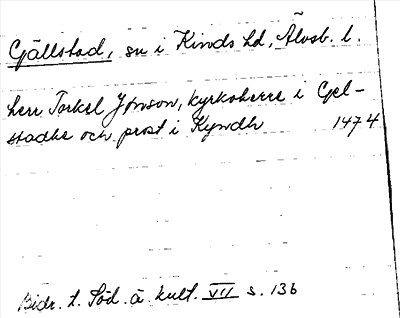 Gällstad, sn i Kinds hd, Älvsb. l.
herr Torkel Jönson, kyrkoherre i Gel-
stadhe och prost i Kyndh 1474
Bidr. t. Söd. ä. kult. VII s. 136